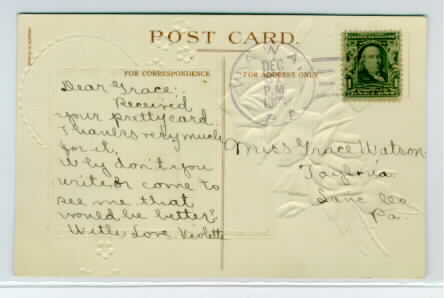 POST CARD.
FOR CORRESPONDENCE
FOR ADDRESS ONLY
DEC
P M
PA.
Dear Grace:
Received
your pretty card.
Thanks very much
for it.
Why don't you
write or come to
see me that
would be better?
With Love Violette
Miss Grace Watson
Co
Pa.